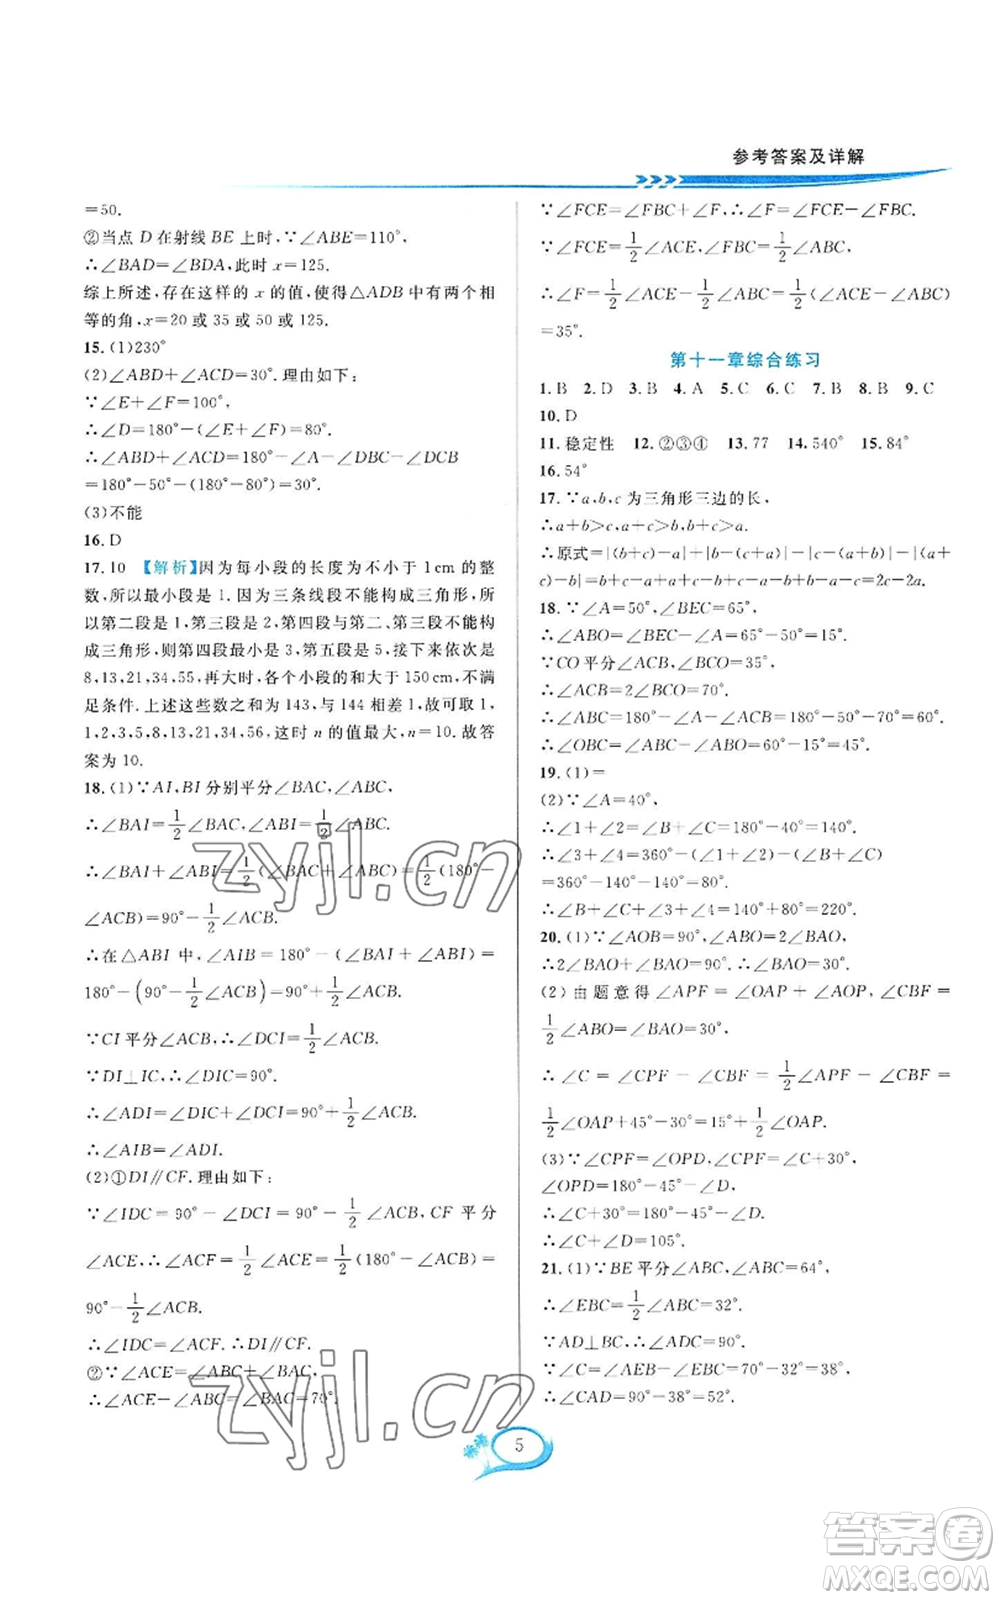 参考答案及详解
=50.
②当点 D 在射线 BE 上时,∵∠ABE=110°,
∴∠BAD=∠BDA,此时 x=125.
综上所述,存在这样的 x 的值,使得△ADB 中有两个相
等的角,x=20 或 35 或 50 或 125.
15. (1)230°
(2)∠ABD+∠ACD=30°. 理由如下:
∵∠E+∠F=100°,
∴∠D=180°-(∠E+∠F)=80°.
∴∠ABD+∠ACD=180°-∠A-∠DBC-∠DCB
=180°-50°-(180°-80°)=30°.
(3)不能
16. D
17. 10 【解析】因为每小段的长度为不小于 1 cm 的整
数,所以最小段是 1. 因为三条线段不能构成三角形,所
以第二段是 1,第三段是 2,第四段与第二、第三段不能构
成三角形,则第四段最小是 3,第五段是 5,接下来依次是
8,13,21,34,55,再大时,各个小段的和大于 150 cm,不满
足条件. 上述这些数之和为 143,与 144 相差 1,故可取 1,
1,2,3,5,8,13,21,34,56,这时 n 的值最大,n=10. 故答
案为 10.
18. (1)∵AI,BI 分别平分∠BAC,∠ABC,
∴∠BAI=1/2∠BAC,∠ABI=1/2∠ABC.
∴∠BAI+∠ABI=1/2(∠BAC+∠ABC)=1/2(180°-
∠ACB)=90°-1/2∠ACB.
∴在△ABI 中,∠AIB=180°-(∠BAI+∠ABI)=
180°-(90°-1/2∠ACB)=90°+1/2∠ACB.
∵CI 平分∠ACB,∴∠DCI=1/2∠ACB.
∵DI⊥IC,∴∠DIC=90°.
∴∠ADI=∠DIC+∠DCI=90°+1/2∠ACB.
∴∠AIB=∠ADI.
(2)①DI∥CF. 理由如下:
∵∠IDC=90°-∠DCI=90°-1/2∠ACB,CF 平分
∠ACE,∴∠ACF=1/2∠ACE=1/2(180°-∠ACB)=
90°-1/2∠ACB.
∴∠IDC=∠ACF. ∴DI∥CF.
②∵∠ACE=∠ABC+∠BAC,
∴∠ACE-∠ABC=∠BAC=70°.
∵∠FCE=∠FBC+∠F,∴∠F=∠FCE-∠FBC.
∵∠FCE=1/2∠ACE,∠FBC=1/2∠ABC,
∴∠F=1/2∠ACE-1/2∠ABC=1/2(∠ACE-∠ABC)
=35°.
第十一章综合练习
1. B 2. D 3. B 4. A 5. C 6. C 7. B 8. B 9. C
10. D
11. 稳定性 12. ②③④ 13. 77 14. 540° 15. 84°
16. 54°
17. ∵a,b,c 为三角形三边的长,
∴a+b>c,a+c>b,b+c>a.
∴原式=|(b+c)-a|+|b-(c+a)|-|c-(a+
b)|-|(a+c)-b|=b+c-a+a+c-b+c-a-b+b-a-c=2c-2a.
18. ∵∠A=50°,∠BEC=65°,
∴∠ABO=∠BEC-∠A=65°-50°=15°.
∵CO 平分∠ACB,∠BCO=35°,
∴∠ACB=2∠BCO=70°.
∴∠ABC=180°-∠A-∠ACB=180°-50°-70°=60°.
∴∠OBC=∠ABC-∠ABO=60°-15°=45°.
19. (1)=
(2)∵∠A=40°,
∴∠1+∠2=∠B+∠C=180°-40°=140°.
∴∠3+∠4=360°-(∠1+∠2)-(∠B+∠C)
=360°-140°-140°=80°.
∴∠B+∠C+∠3+∠4=140°+80°=220°.
20. (1)∵∠AOB=90°,∠ABO=2∠BAO,
∴2∠BAO+∠BAO=90°. ∴∠BAO=30°.
(2)由题意得∠APF=∠OAP+∠AOP,∠CBF=
1/2∠ABO=∠BAO=30°,
∴∠C=∠CPF-∠CBF=1/2∠APF-∠CBF=
1/2∠OAP+45°-30°=15°+1/2∠OAP.
(3)∵∠CPF=∠OPD,∠CPF=∠C+30°,
∠OPD=180°-45°-∠D,
∴∠C+30°=180°-45°-∠D.
∴∠C+∠D=105°.
21. (1)∵BE 平分∠ABC,∠ABC=64°,
∴∠EBC=1/2∠ABC=32°.
∵AD⊥BC,∴∠ADC=90°.
∴∠C=∠AEB-∠EBC=70°-32°=38°,
∴∠CAD=90°-38°=52°.
5
zyjl.cn
zyjl.cn
答案卷
MXQE.COM